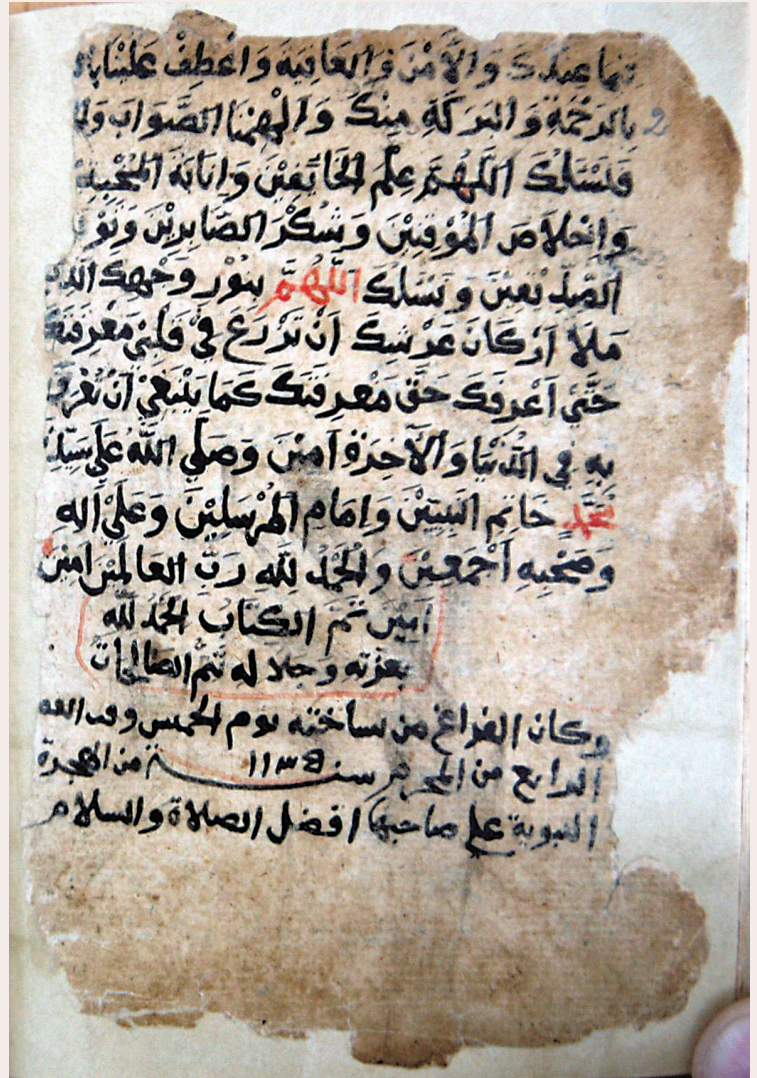 تنما عبيدك والامن والعافية واعطف علينا
بالرحمة والبركة منك والهمنا الصواب
فنسئلك اللهم علم الخائفين وانابة
واخلاص الموقنين وشكر الصابرين
ونسئلك اللهم بنور وجهك
ملا اركان عرشك ان تزرع في قلبي معرفتك
حتى اعرفك حق معرفتك كما ينبغي ان تعرف
به في الدنيا والآخرة امين وصلي الله علي
محمد خاتم النبيين وامام المرسلين وعلي اله
وصحبه اجمعين والحمد لله رب العالمين امين
امين تم الكتاب الحمد لله
بعزته وجلاله تتم الصالحات
وكان الفراغ من ساخته يوم الخمس
الرابع من المحرم سنة من الهجرة
النبوية علي صاحبها افضل الصلاة والسلام